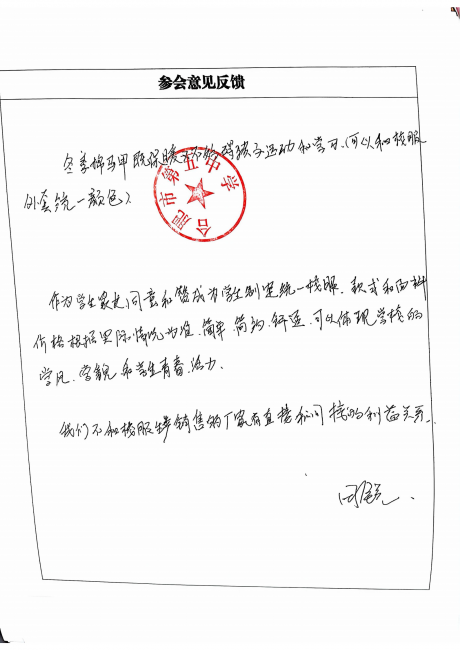 参会意见反馈
冬季棉马甲既保暖又不妨碍孩子运动和学习.(可以和校服
外套统一颜色)
合肥市第五中学
作为学生家长,同意和赞成为学生制定统一校服.款式和面料
价格根据实际情况为准.简单.简约.舒适.可以体现学校的
学风.学貌和学生青春.活力.
我们不和校服生产销售的厂家有直接和间接的利益关系.